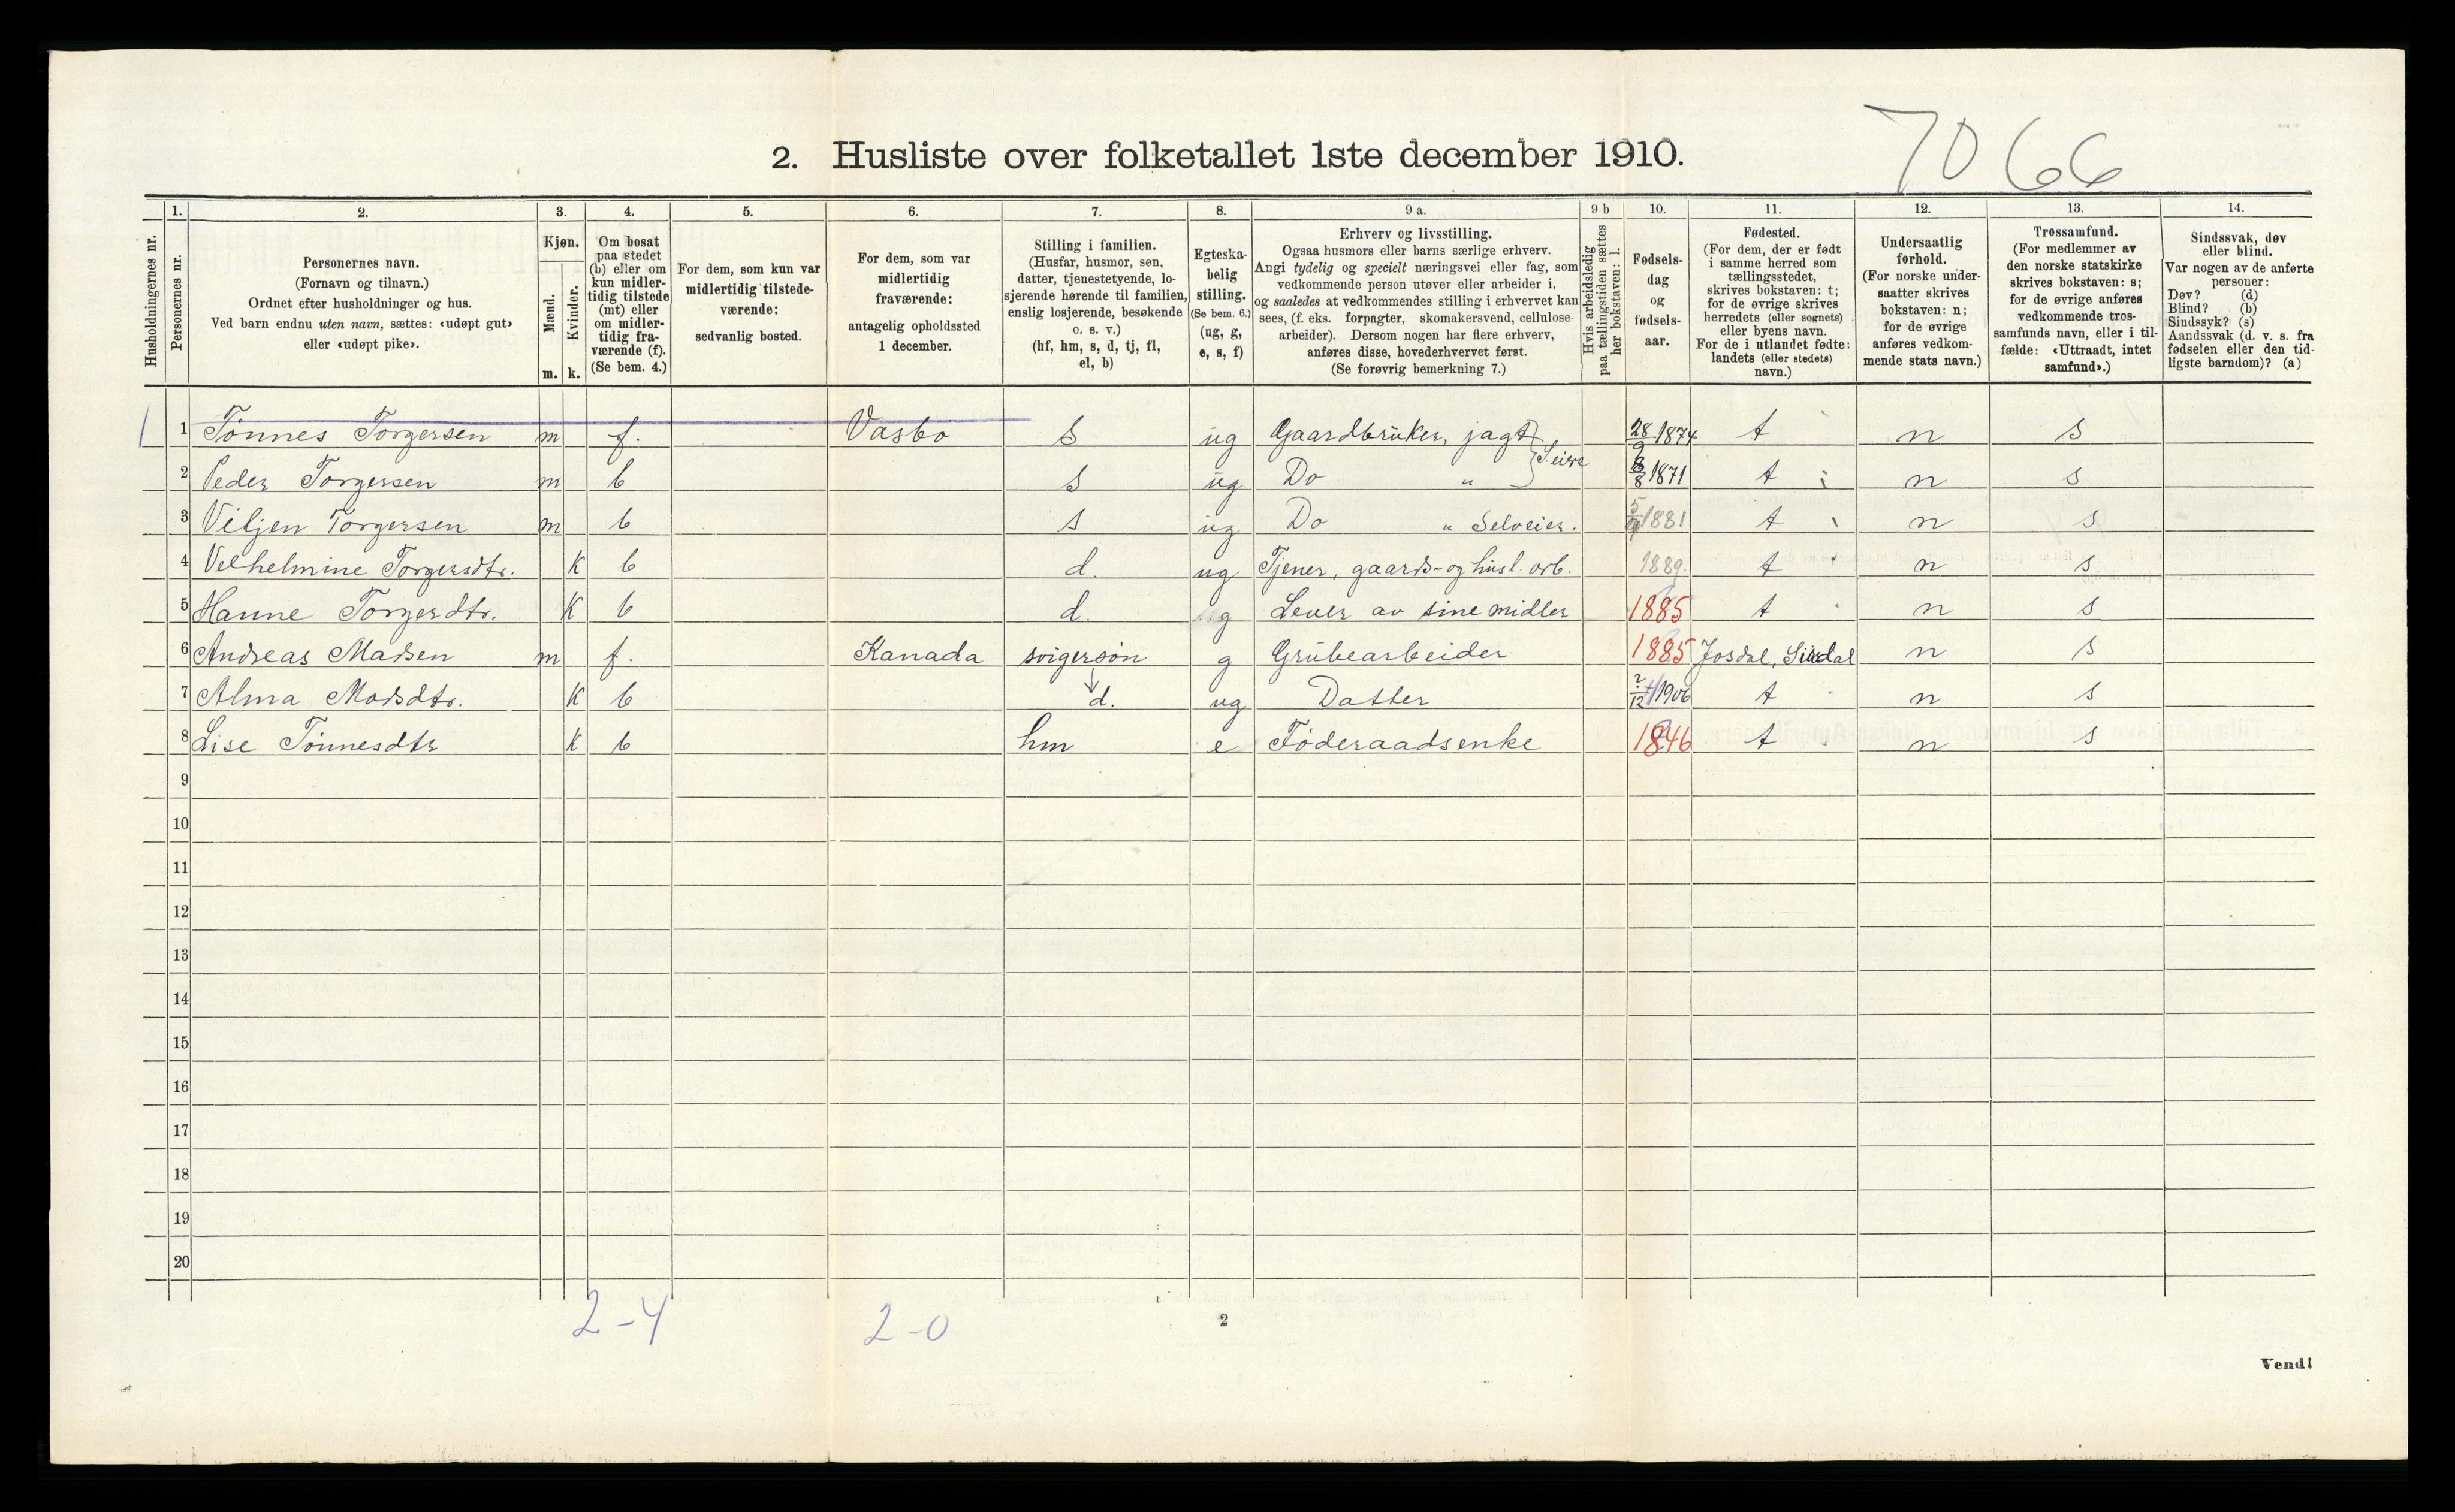 7066
2. Husliste over folketallet 1ste december 1910.
Husholdningernes nr.
1. Personernes nr.
2. Personernes navn.
(Fornavn og tilnavn.)
Ordnet efter husholdninger og hus.
Ved barn endnu uten navn, sættes: «udøpt gut»
eller «udøpt pike».
3. Kjøn.
Mænd. m.
Kvinder. k.
4. Om bosat
paa stedet
(b) eller om
kun midler-
tidig tilstede
(mt) eller
om midler-
tidig fra-
værende (f).
(Se bem. 4.)
5. For dem, som kun var
midlertidig tilstede-
værende:
sedvanlig bosted.
6. For dem, som var
midlertidig
fraværende:
antagelig opholdssted
1 december.
7. Stilling i familien.
(Husfar, husmor, søn,
datter, tjenestetyende, lo-
sjerende hørende til familien,
enslig losjerende, besøkende
o. s. v.)
(hf, hm, s, d, tj, fl,
el, b)
8. Egteska-
belig
stilling.
(Se bem. 6.)
(ug, g,
e, s, f)
9 a. Erhverv og livsstilling.
Ogsaa husmors eller barns særlige erhverv.
Angi tydelig og specielt næringsvei eller fag, som
vedkommende person utøver eller arbeider i,
og saaledes at vedkommendes stilling i erhvervet kan
sees, (f. eks. forpagter, skomakersvend, cellulose-
arbeider). Dersom nogen har flere erhverv,
anføres disse, hovederhvervet først.
(Se forøvrig bemerkning 7.)
9 b Hvis arbeidsledig
paa tællingstiden sættes
her bokstaven: l.
10. Fødsels-
dag
og
fødsels-
aar.
11. Fødested.
(For dem, der er født
i samme herred som
tællingsstedet,
skrives bokstaven: t;
for de øvrige skrives
herredets (eller sognets)
eller byens navn.
For de i utlandet fødte:
landets (eller stedets)
navn.)
12. Undersaatlig
forhold.
(For norske under-
saatter skrives
bokstaven: n;
for de øvrige
anføres vedkom-
mende stats navn.)
13. Trossamfund.
(For medlemmer av
den norske statskirke
skrives bokstaven: s;
for de øvrige anføres
vedkommende tros-
samfunds navn, eller i til-
fælde: «Uttraadt, intet
samfund».)
14. Sindssvak, døv
eller blind.
Var nogen av de anførte
personer:
Døv? (d)
Blind? (b)
Sindssyk? (s)
Aandssvak (d. v. s. fra
fødselen eller den tid-
ligste barndom)? (a)
1 Tønnes Torgersen m f. Vasbo s ug Gaardbruker, jagt 28/9 1874 t n s
2 Peder Torgersen m b s ug Do " } Seire 1871 t n s
3 Viljen Torgersen m b s ug Do " Selveier. 1881 t n s
4 Velhelmine Torgersdtr. K b d. ug Tjener, gaards- og husl. arb. 1889. t n s
5 Hanne Torgerdtr. K b d. g Lever av sine midler 1885 t n s
6 Andreas Madsen m f. Kanada svigersøn g Grubearbeider 1885 Josdal, Sirdal n s
7 Alma Madsdtr. K b d. ug Datter 1906 t n s
8 Lise Tønnesdtr K b hm e Føderaadsenke 1846 t n s
9
10
11
12
13
14
15
16
17
18
19
20
2-4 2-0
2
Vend!